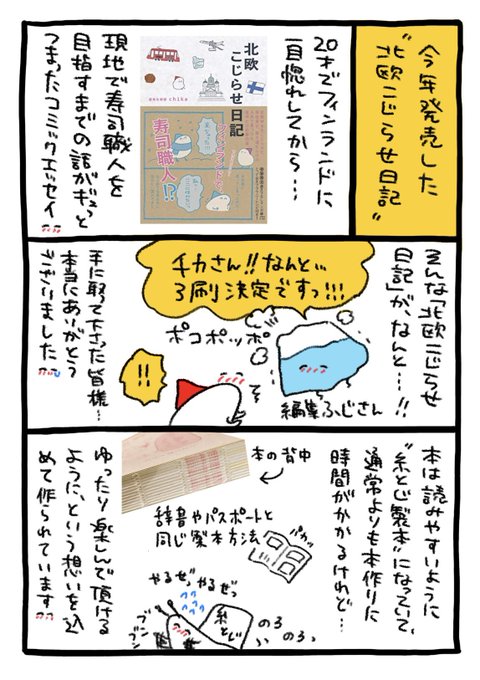 今年発売した
"北欧こじらせ日記"
20才でフィンランドに
一目惚れしてから…
北欧
こじらせ日記
フィンランドで
寿司職人!?
現地で寿司職人を
目指すまでの話がギュっと
つまったコミックエッセイ
そんな「北欧こじらせ
日記」が、なんと…!!
チカさん!!なんと…
3刷決定ですっ!!!
ポコポッポ
編集ふじさん
!!
手に取って下さった皆様…
本当にありがとう
ございました
本は読みやすいように
"糸とじ製本"になっていて、
通常よりも本作りに
時間がかかるけれど…
本の背中
辞書やパスポートと
同じ製本方法
パカッ
やるぜっやるぜっ
糸とじ
ブンブン
のろ
のろっ
ゆったり楽しんで頂ける
ように、という想いを込
めて作られています